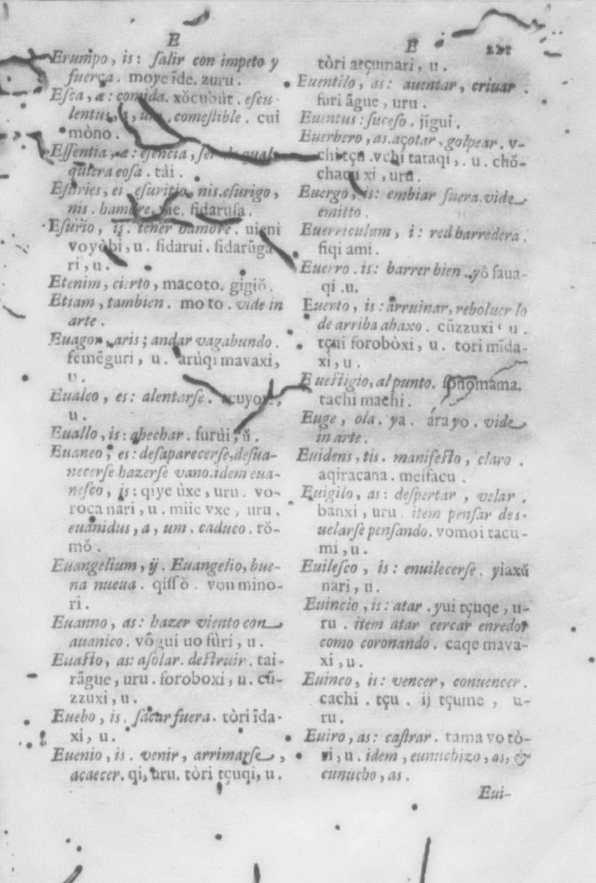 E
Erumpo, is: salir con impeto y
fuerça. moye ide. zuru.
Esca, æ: comida. xŏcubut. escu-
lentus, comestible. cui
mòno.
Essentia, æ: esencia, ser de qual-
quiera cosa. tái.
Esuries, ei, esuritio, nis. esurigo,
nis. hambre. fidarusa.
Esurio, is. tener hambre. uigni
voyòbi, u. fidarui. fidarũga
ri, u.
Etenim, cierto, macoto. gigiŏ.
Etiam, tambien. moto. vide in
arte.
Euagor, aris; andar vagabundo.
femẽguri, u. arúqi mavaxi,
u.
Eualeo, es: alentarse.
u.
Euallo, is: ahechar. furúi, ŭ.
Euaneo, es: desaparecerse, desua-
necerse hazerse vano. idem eua-
nesco, is: qiye úxe, uru. vo-
roca nari, u. miic vxe, uru.
euanidus, a, um. caduco. rŏ-
mŏ.
Euangelium, ij. Euangelio, bue-
na nueua. qissŏ. von mino-
ri.
Euanno, as: hazer viento con
auanico. vŏgui uo súri, u.
Euasto, as: asolar. destruir. tai-
rãgue, uru. foroboxi, u. cũ-
zzuxi, u.
Euebo, is. sacar fuera. tòri ĩda-
xi, u.
Euenio, is. venir, arrimarse,
acaecer. qi, uru. tòri tçuqi, u.
E 221
tòri atçuinari, u.
Euentilo, as: auentar, criuar.
furi ãgue, uru.
Euentus: suceso. jigui.
Euerbero, as. açotar, golpear. v-
chi tçu. vchi tataqi, u. chŏ-
chacu xi, uru.
Euergo, is: embiar fuera. vide
emitto.
Euerriculum, i: red barredera.
fiqi ami.
Euerro. is: barrer bien. yŏ faua-
qi. u.
Euerto, is: arruinar, reboluer lo
de arriba abaxo. cũzzuxi u.
tçui foroboxi, u. tori mĩda-
xi, u.
Euestigio, al punto. sonomama.
tachi machi.
Euge, ola. ya. árayo. vide
in arte.
Euidens, tis. manifesto, claro.
aqiracana. meifacu.
Euigilo, as: despertar, velar.
banxi, uru. item pensar des-
uelarse pensando. vomoi tacu-
mi, u.
Euilesco, is: enuilecerse. yiaxŭ
nari, u.
Euincio, is: atar. yui tçuqe, u-
ru. item atar cercar enredor
como coronando. caqe mava-
xi, u.
Euinco, is: vencer, conuencer.
cachi. tçu. ij tçume, u-
ru.
Euiro, as: castrar. tama vo tò-
ri, u. idem, eunuchizo, as, &
eunucho, as.
Eui-